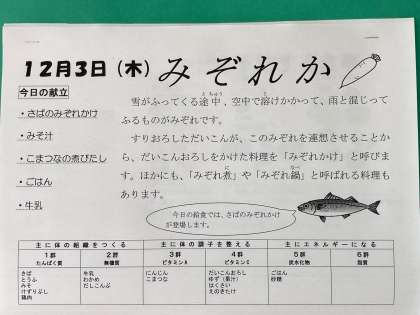 12月3日（木）みぞれか
今日の献立
・さばのみぞれかけ
・みそ汁
・こまつなの煮びたし
・ごはん
・牛乳
雪がふってくる途中、空中で溶けかかって、雨と混じって
ふるものがみぞれです。
すりおろしただいこんが、このみぞれを連想させることか
ら、だいこんおろしをかけた料理を「みぞれかけ」と呼びま
す。ほかにも、「みぞれ煮」や「みぞれ鍋」と呼ばれる料理も
あります。
今日の給食では、さばのみぞれかけ
が登場します。
主に体の組織をつくる 主に体の調子を整える 主にエネルギーになる
1群 2群 3群 4群 5群 6群
たんぱく質 無機質 ビタミンA ビタミンC 炭水化物 脂質
さば 牛乳 にんじん だいこんおろし ごはん
とうふ わかめ こまつな ゆず（果汁） 砂糖
みそ だしこんぶ はくさい
けずりぶし えのきたけ
鶏肉